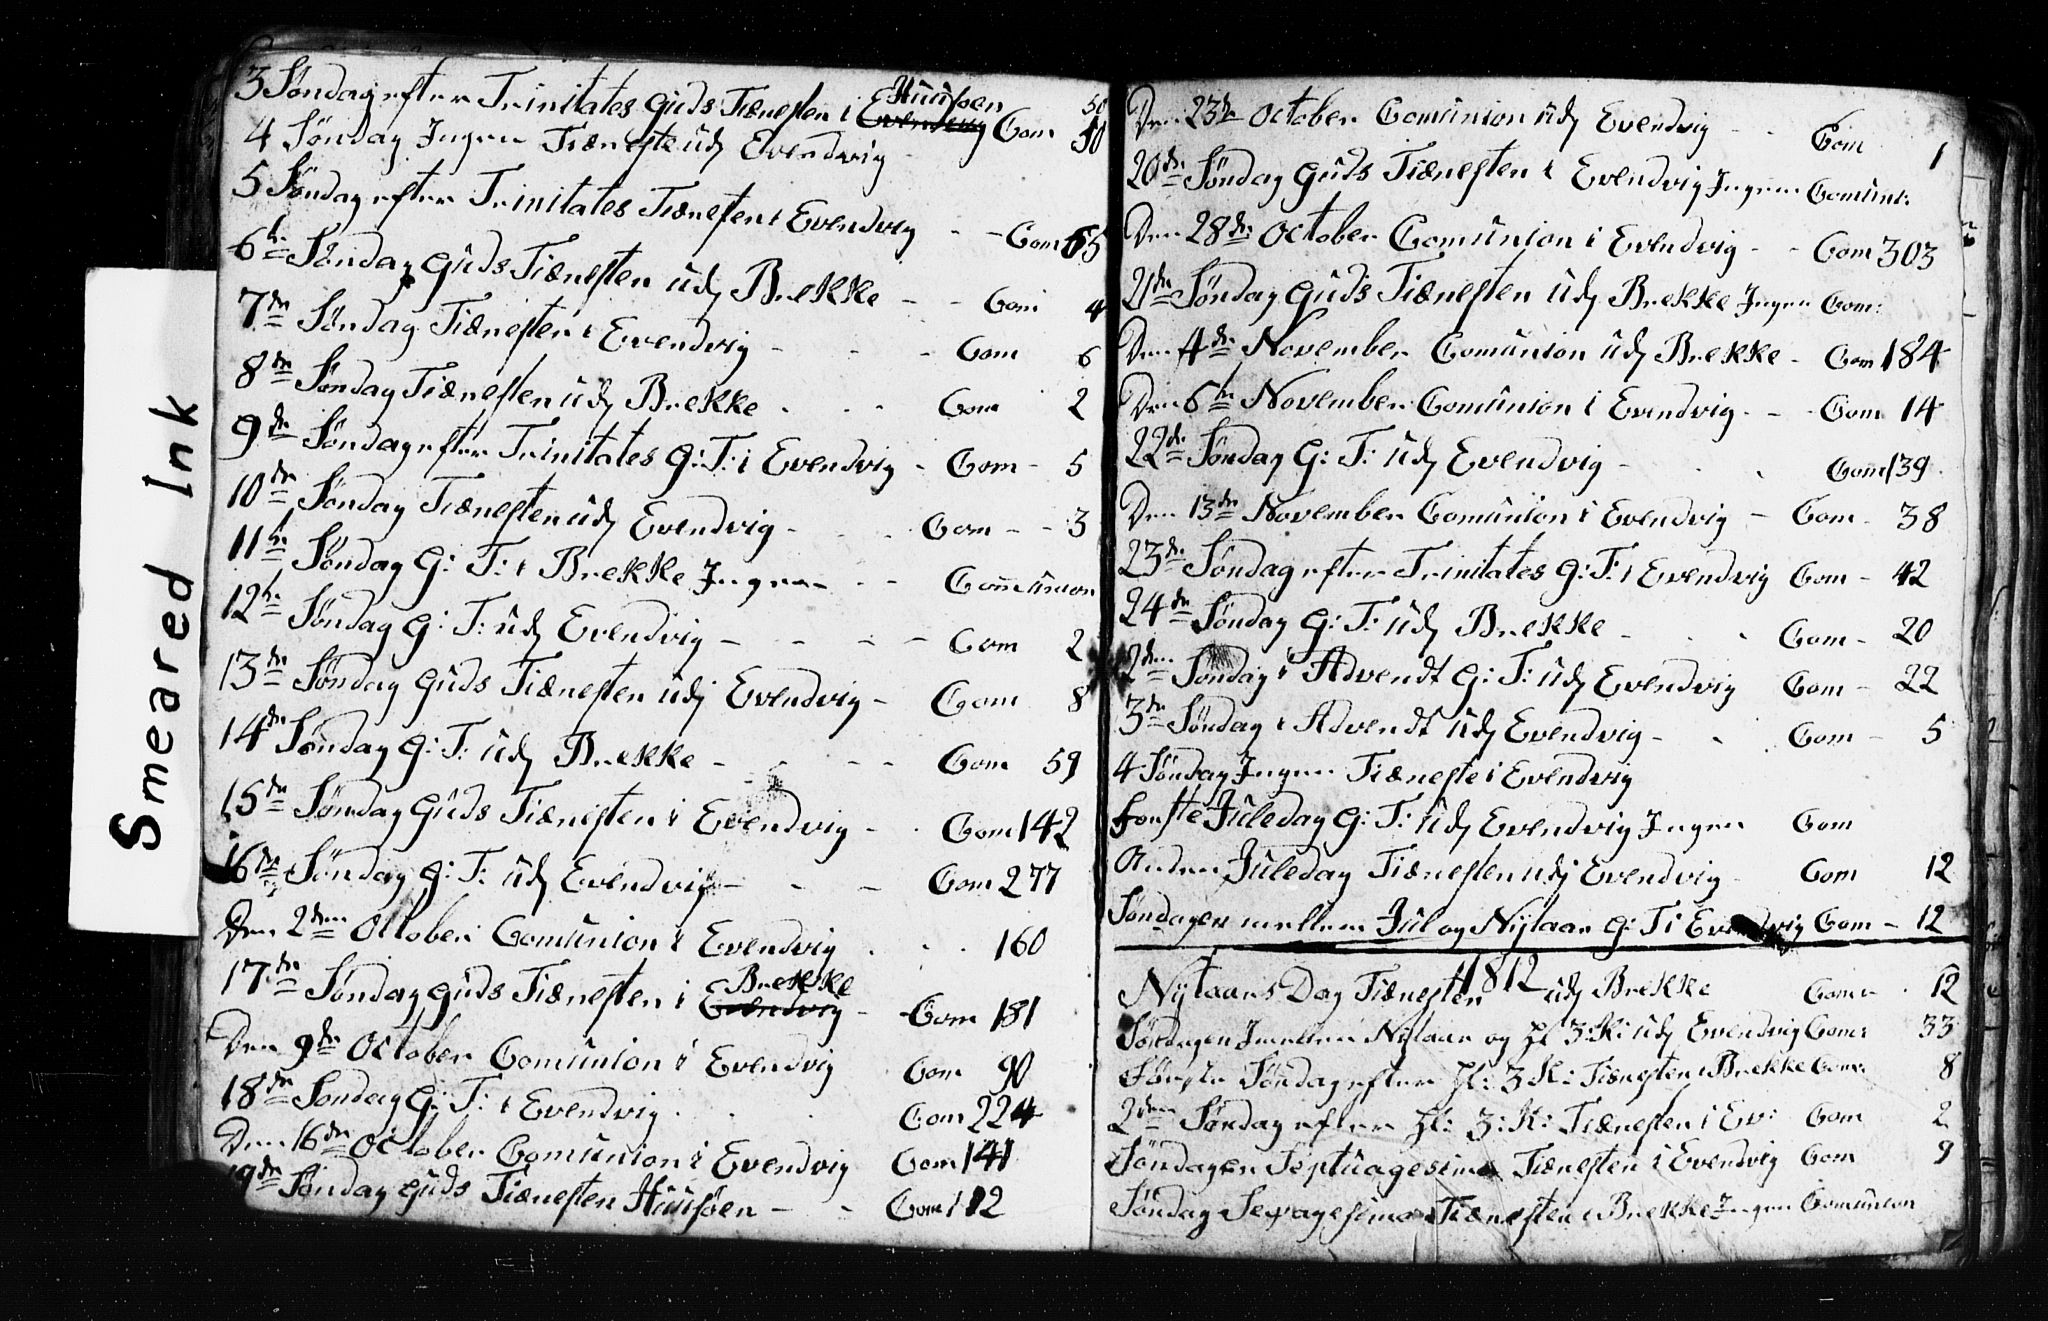 Smeared Ink
3 Søndag efter Trinitates Guds Tiænesten i Evendvig Huusøen Com 50 50
4 Søndag Ingen Tiæneste udj Evendvig
5 Søndag efter Trinitates Tiænesten i Evendvig - - Com 65
6te Søndag Guds Tiænesten udj Brekke - - Com 4
7de Søndag Tiænesten i Evendvig - - - Com 6
8de Søndag Tiænesten udj Brekke - - - Com 2
9de Søndag efter Trinitates G: T: i Evendvig - Com - 5
10de Søndag Tiænesten udj Evendvig - - - Com - - 3
11te Søndag G: T: i Brekke Ingen - - Communion
12te Søndag G: T: udj Evendvig - - - - Com 2
13de Søndag Guds Tiænesten udj Evendvig - Com 8
14de Søndag G: T: udj Brekke - - - - Com 59
15de Søndag Guds Tiænesten i Evendvig - - Com 142
16de Søndag G: T: udj Evendvig - - - Com 277
Den 2den October Comunion i Evendvig - - - 160
17de Søndag Guds Tiænesten i Evendvig Brekke - Com 181
Den 9de October Comunion i Evendvig Com 90
18de Søndag G: T: i Evendvig - - - Com 224
Den 16de October Comunion i Evendvig Com 141
19de Søndag Guds Tiænesten Huusøen - - Com 112
Den 23de October Comunion udj Evendvig - - Com 1
20de Søndag Guds Tiænesten i Evendvig Ingen Comuni:
Den 28de October Comunion i Evendvig - - Com 303
21de Søndag Guds Tiænesten udj Brekke Ingen Com:
Den 4de November Comunion udj Brekke - Com 184
Den 6te November Comunion i Evendvig - - Com 14
22de Søndag G: T: udj Evendvig - - - Com 139
Den 13de November Comunion i Evendvig - Com - 38
23de Søndag efter Trinitates G: T: i Evendvig Com - 42
24de Søndag G: T: udj Brekke - - - Com - 20
2den Søndag i Advendt G: T: udj Evendvig Com - 22
3de Søndag i Advendt udj Evendvig - - Com - 5
4 Søndag Ingen Tiæneste i Evendvig
Første Juledag G: T: udj Evendvig Ingen Com
Anden Juledag Tiænesten udj Evendvig - Com 12
Søndagen mellem Jul og Nÿtaar G: T i Evendvig Com - 12
1812
Nÿtaars Dag Tiænesten udj Brekke Com - 12
Søndagen Imellem Nÿtaar og Hl 3: K: udj Evendvig Com: 33
Første Søndag efter Hl: 3 K: Tiænesten i Brekke Com: 8
2den Søndag efter Hl: 3: K: Tiænesten i Ev: Com 2
Søndagen Septuagesima Tiænesten i Evendvig Com 9
Søndag Sexagesima Tiænesten i Brekke Ingen Comunion